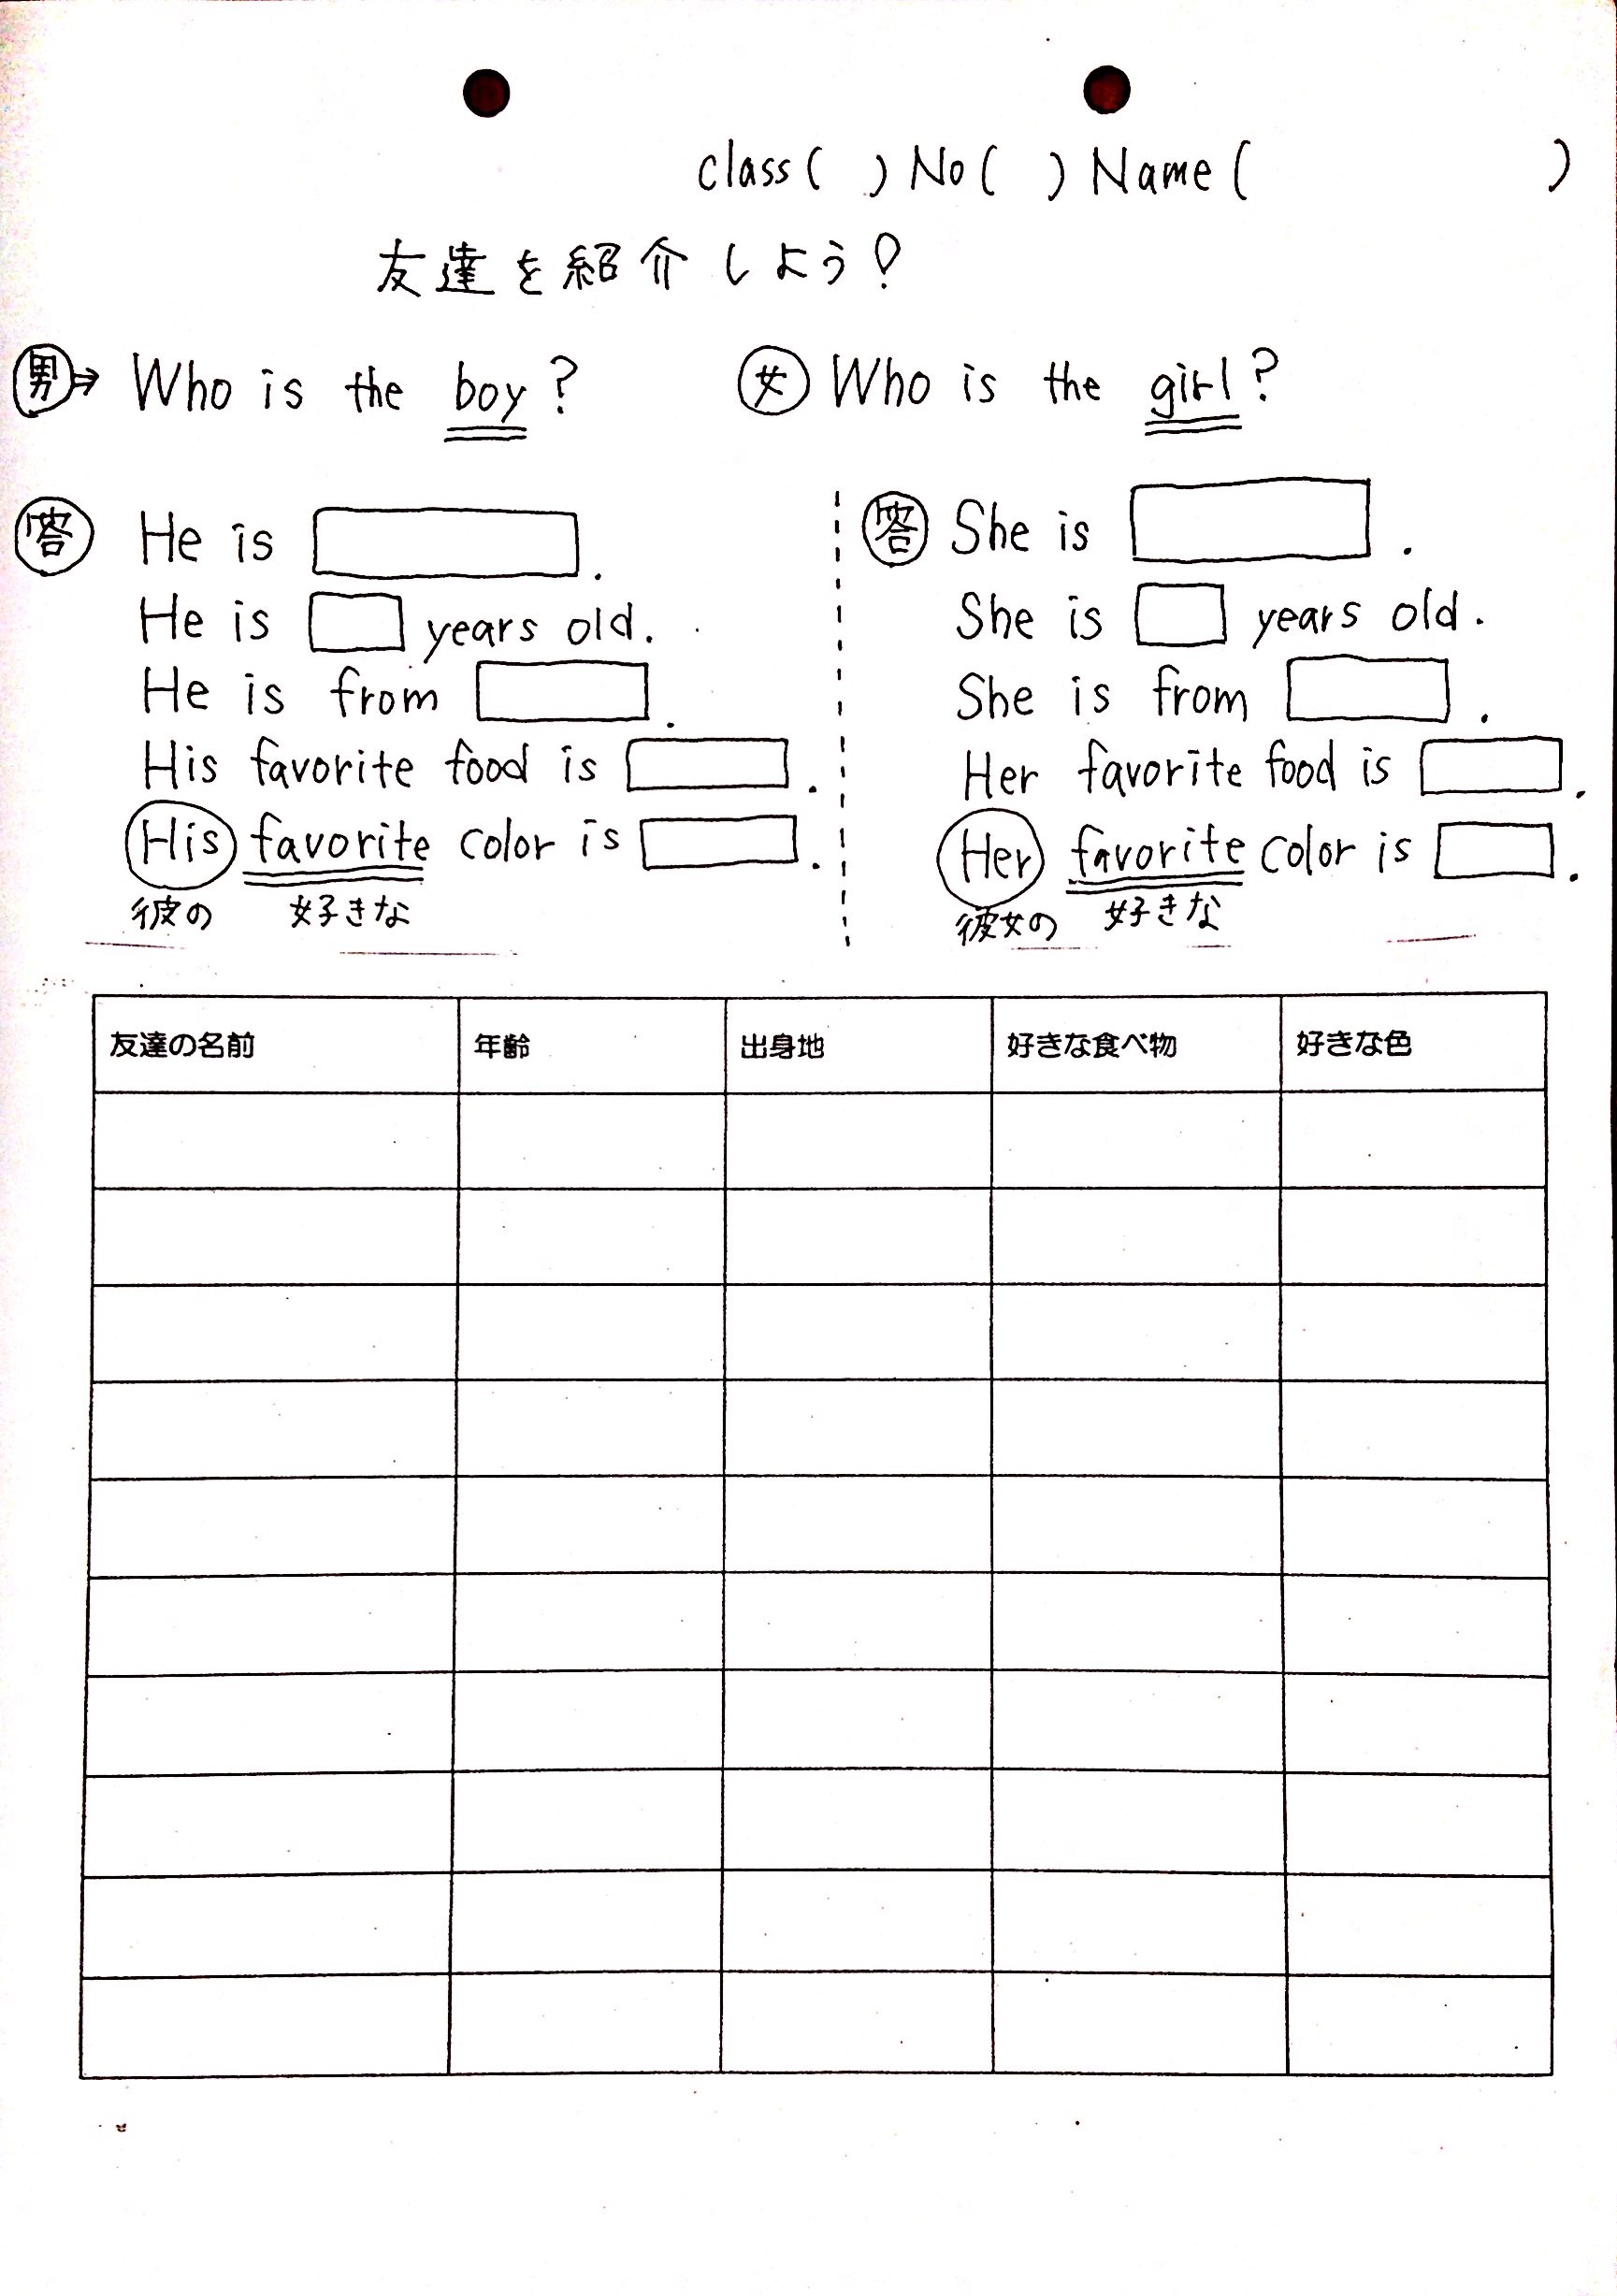 class( ) No( ) Name( )
友達を紹介しよう!
男→ Who is the boy?
女 Who is the girl?
答 He is .
He is years old.
He is from .
His favorite food is .
His favorite color is .
彼の 好きな
答 She is .
She is years old.
She is from .
Her favorite food is .
Her favorite color is .
彼女の 好きな
友達の名前 年齢 出身地 好きな食べ物 好きな色